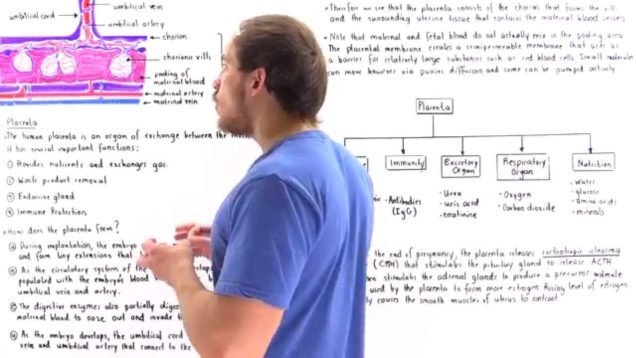 umbilical vein
umbilical cord
umbilical artery
chorion
chorionic villi
pooling of
maternal blood
maternal artery
maternal vein
Placenta
The human placenta is an organ of exchange between the
It has several important functions:
① Provides nutrients and exchanges gas.
② Waste product removal
③ Endocrine gland
④ Immune Protection
How does the placenta form?
During implantation, the embryo
and form tiny extensions that
As the circulatory system of the
populated with the embryo's blood
umbilical vein and artery.
The digestive enzymes also partially digest
maternal blood to ooze out and
As the embryo develops, the umbilical cord
vein and umbilical artery that connect to the
Therefore we see that the placenta consists of the chorion that forms the villi
and the surrounding uterine tissue that contains the maternal blood vessels
Note that maternal and fetal blood do not actually mix in the pooling area
The placental membrane creates a semipermeable membrane that acts as
a barrier for relatively large substances such as red blood cells. Small molecules
can move however via passive diffusion and some can be pumped actively
Placenta
Immunity
Excretory
Organ
Respiratory
Organ
Nutrition
Antibodies
(IgG)
Urea
uric acid
creatinine
Oxygen
Carbon dioxide
water
glucose
amino acids
minerals
the end of pregnancy, the placenta releases corticotropin releasing
(CRH) that stimulates the pituitary gland to release ACTH
stimulates the adrenal glands to produce a precursor molecule
used by the placenta to form more estrogen. Rising level of estrogen
causes the smooth muscles of uterus to contract